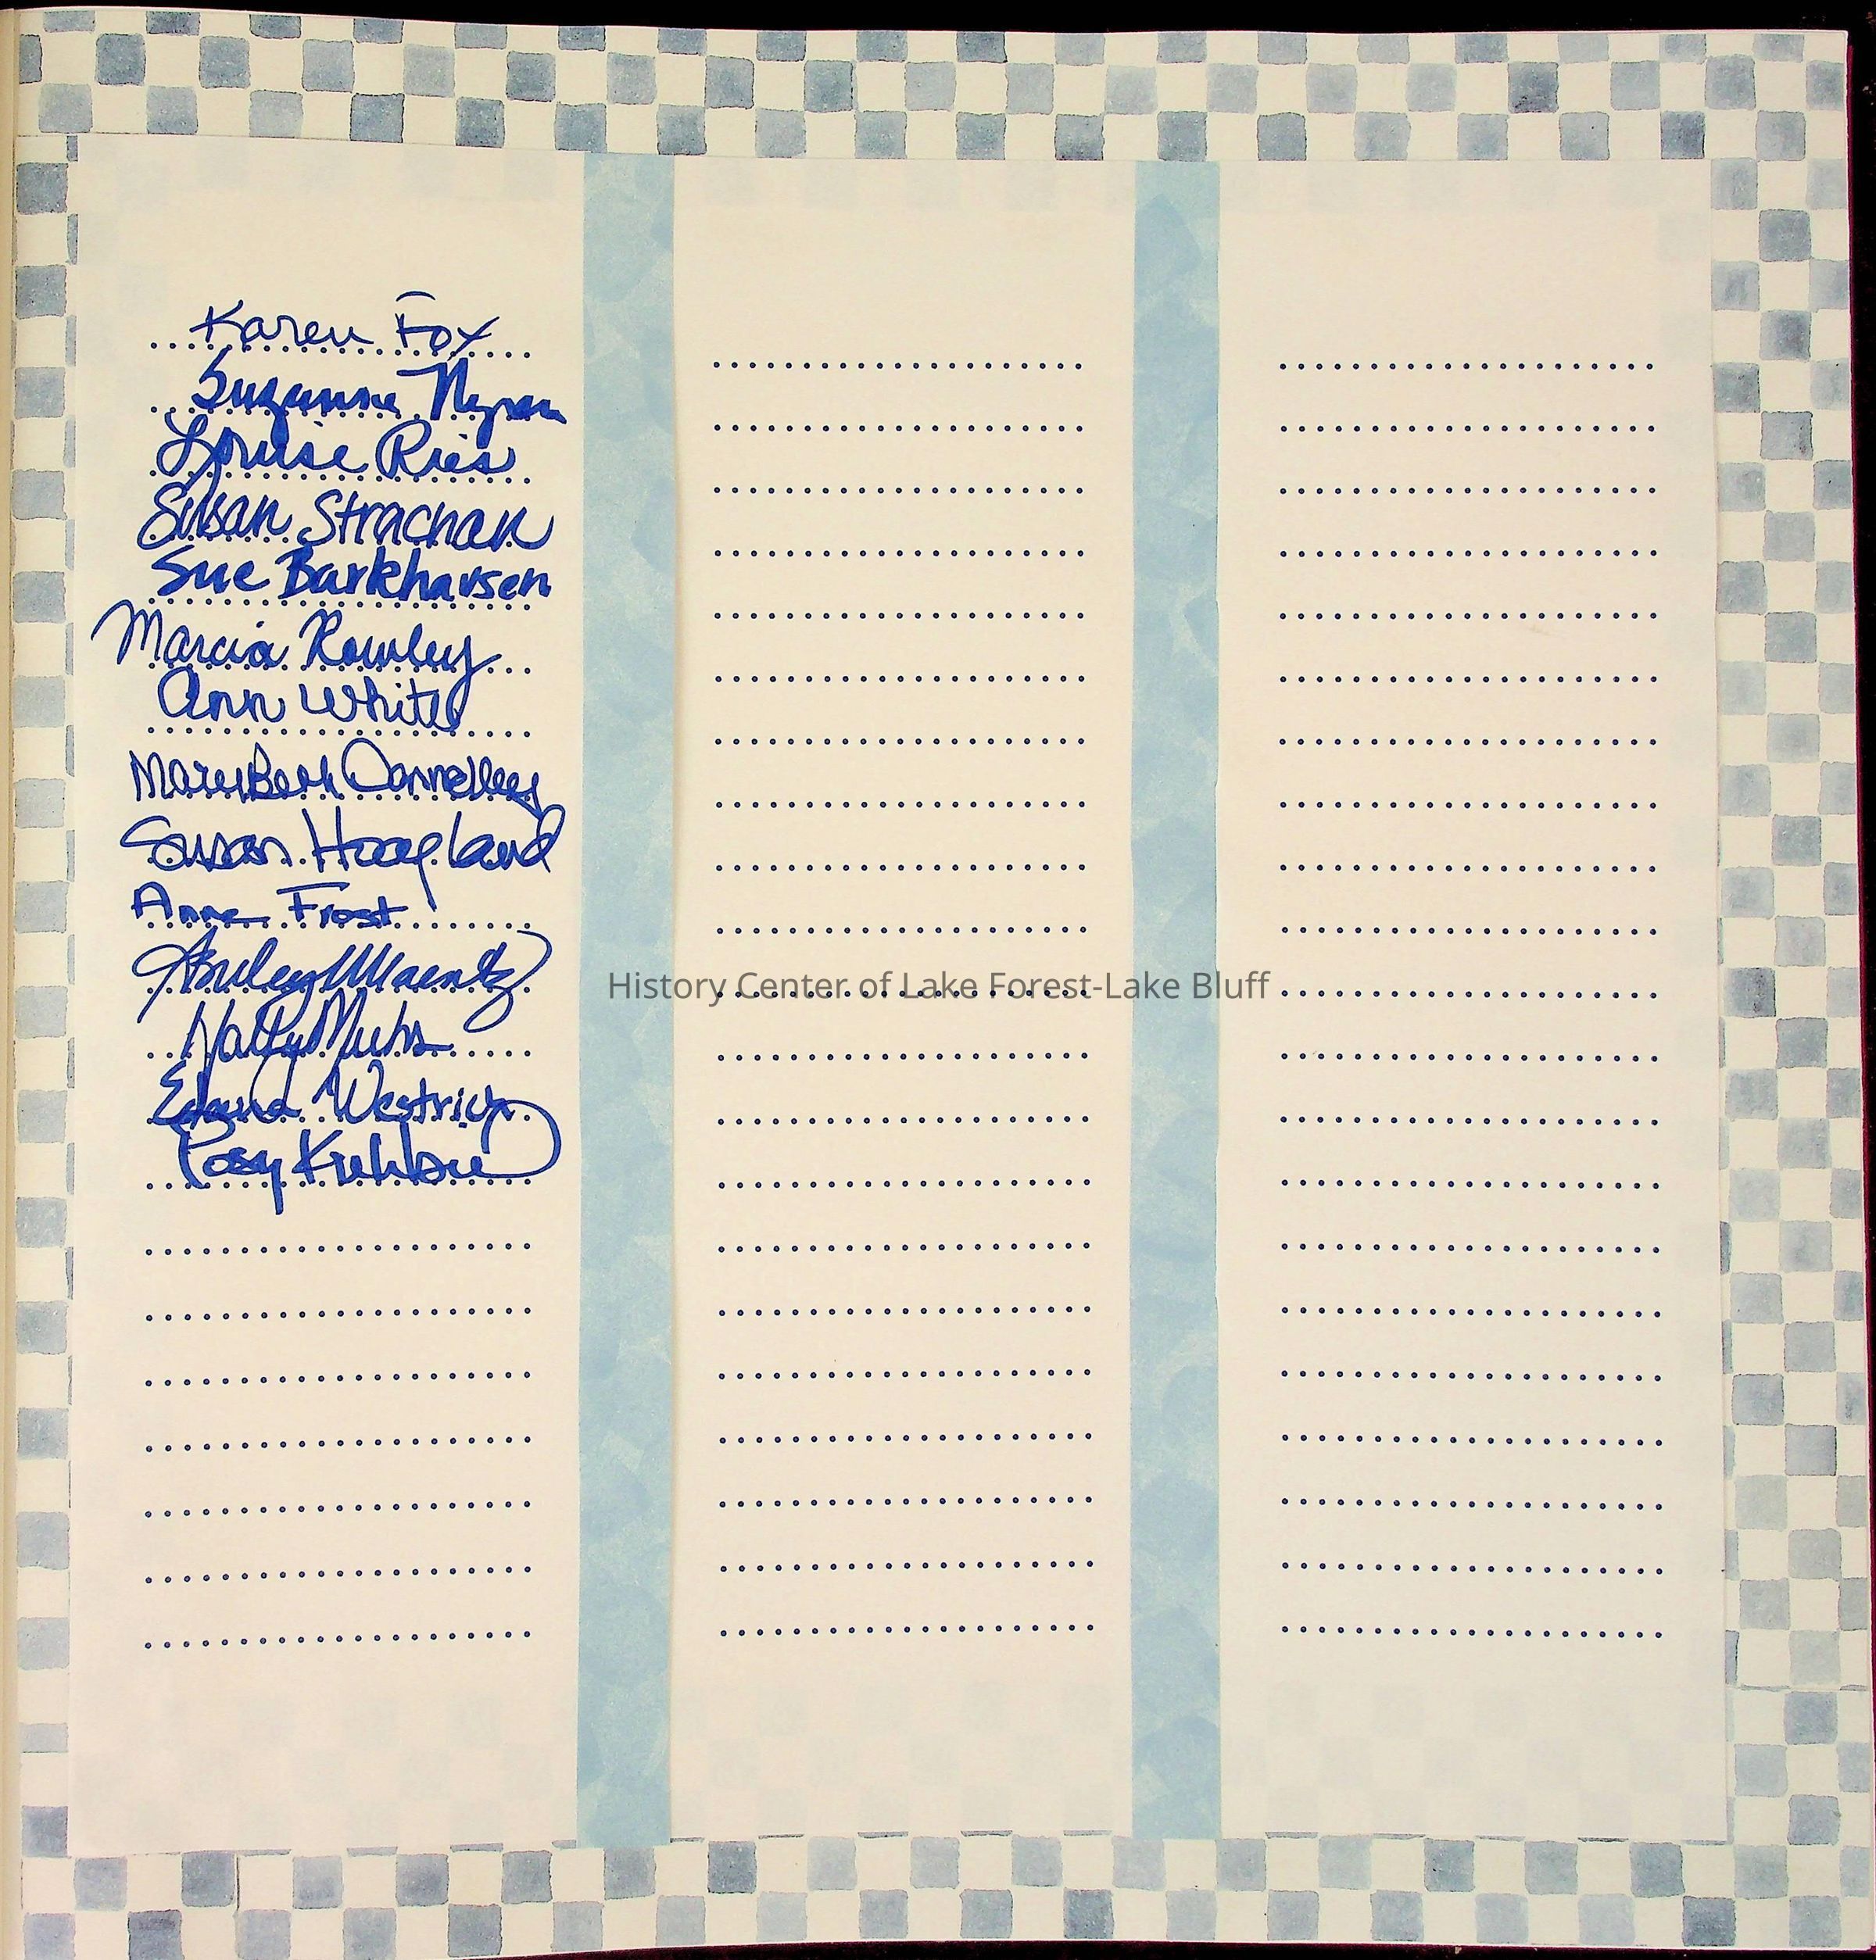 Karen Fox
Suzanne Nyren
Louise Ries
Susan Strachan
Sue Barkhausen
Marcia Rowley
Ann White
MaryBeth Donnelley
Susan Hoagland
Anne Frost
Maentz
History Center of Lake Forest-Lake Bluff
Muhs
Edwina Westrich
Posy Krehbiel